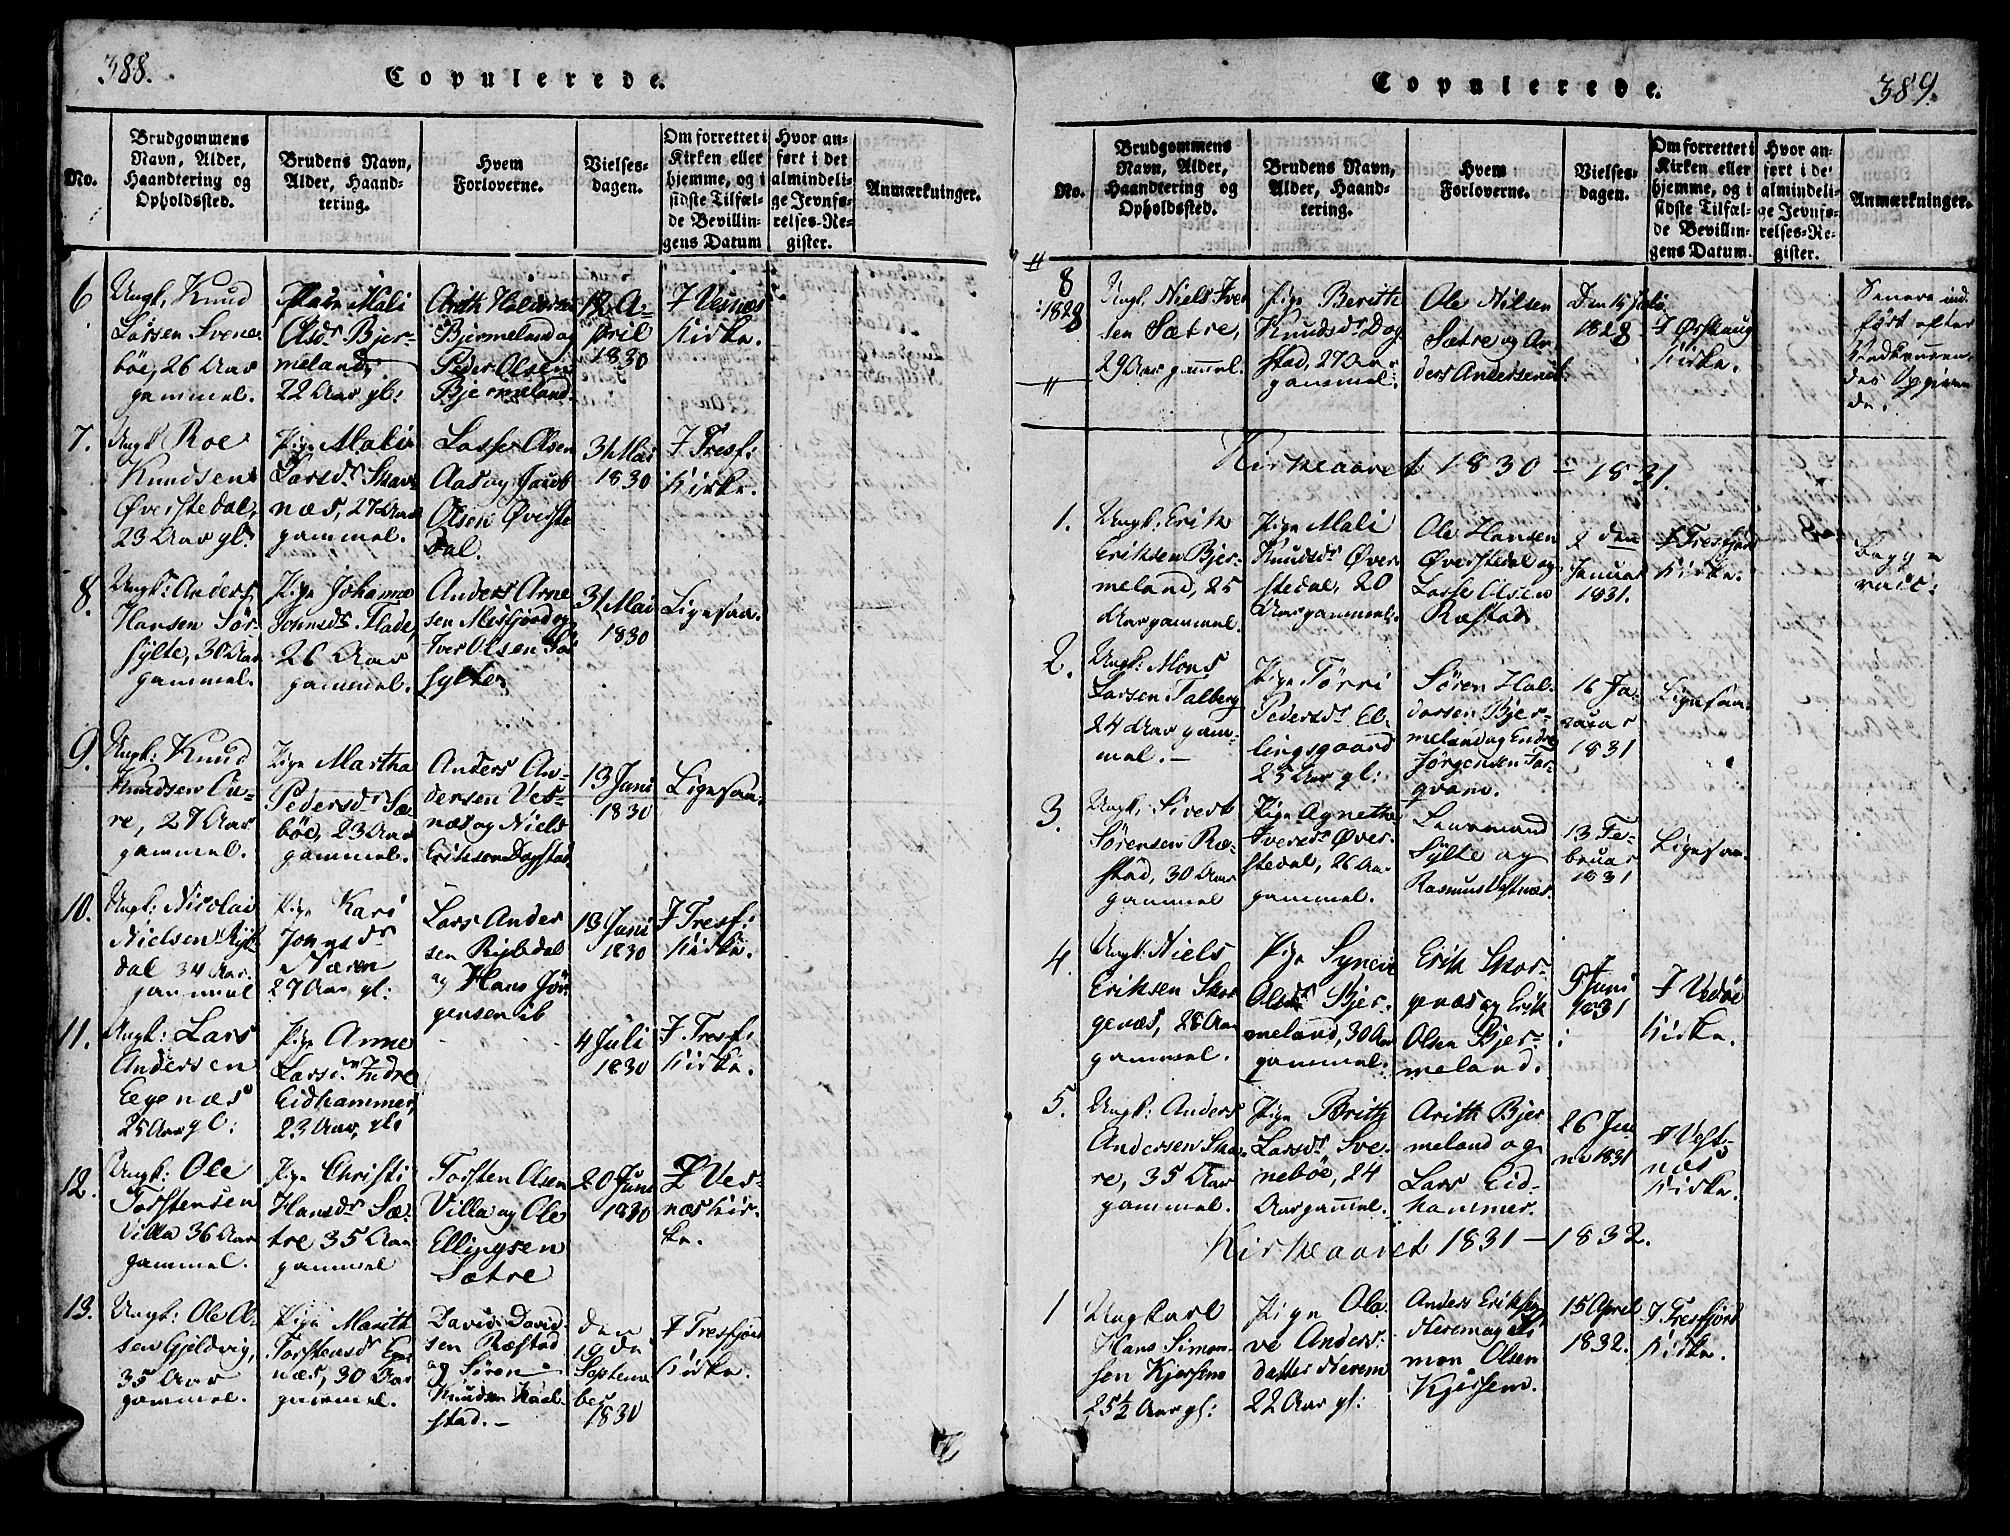 388.
Copulerede.
No.
Brudgommens
Navn, Alder,
Haandtering og
Opholdssted.
Brudens Navn,
Alder, Haand-
tering.
Hvem
Forloverne.
Vielses-
dagen.
Om forrettet i
Kirken eller
hjemme, og i
sidste Tilfæl-
de Bevillin-
gens Datum
Hvor an-
ført i det
almindeli-
ge Jevnfø-
relses-Re-
gister.
Anmærkninger.
6
Ungk. Knud
Larsen Svene-
böe, 26 Aar
gammel.
Pige Mali
Olsdr Bjer-
meland,
22 Aar gl:
Arith
Bjermeland og
Peder Olsen
Bjermeland.
12 A-
pril
1830
I Vesnæs
Kirke.
7.
Ungk Roe
Knudsen
Øverstedal,
23 Aar gl.
Pige Mali
Larsdr Skav-
næs, 27 Aar
gammel.
Lasse Olsen
Aas og Jacob
Olsen Øverste
dal.
31 Mai
1830
I Tresf:
Kirke.
8.
Ungk: Anders
Hansen Sør-
sylte, 30 Aar
gammel.
Pige Johanne
Johnsdr Flade,
26 Aar
gammel.
Anders Arne
sen Misfjord og
Iver Olsen Sør
sylte
31 Mai
1830
Ligesaa.
9.
Ungk: Knud
Knudsen Cu-
re, 27 Aar
gammel.
Pige Martha
Pedersdr Sæ-
böe, 23 Aar
gammel.
Anders An-
dersen Ves-
næs og Niels
Eriksen Dagstad
13 Juni
1830
Ligesaa.
10.
Ungk: Nicolai
Nielsen
dal 34 Aar
gammel
Pige Kari
Johnsdr
Næren
27 Aar gl:
Lars Ander
sen
og Hans Jør
gensen ib
13 Juni
1830
I Tresf:
Kirke.
11.
Ungk: Lars
Andersen
Eegenæs
25 Aar gl:
Pige Anne
Larsdr Indre
Eidhammer,
23 Aar, gl:
4 Juli
1830
I Tresf:
Kirke.
12.
Ungk: Ole
Torstensen
Villa 36 Aar
gammel.
Pige Christi
Hansdr Sæ-
tre 35 Aar
gammel
Torsten Olsen
Villa og Ole
Ellingsen
Sætre
20 Juni
1830
I Ves-
næs Kir-
ke.
13.
Ungk: Ole Ol-
sen Gjeldvig,
35 Aar
gammel.
Pige Marith
Torstensdr
næs, 30 Aar
gammel.
David David-
sen Ræstad
og Søren
Knudsen
stad.-
den
19de
Septem
ber
1830
I Tresfjord
Kirke.
389.
Copulerede.
No.
Brudgommens
Navn, Alder,
Haandtering og
Opholdssted.
Brudens Navn,
Alder, Haand-
tering.
Hvem
Forloverne.
Vielses-
dagen.
Om forrettet i
Kirken eller
hjemme, og i
sidste Tilfæl-
de Bevillin-
gens Datum.
Hvor an-
ført i de
almindeli-
ge Jevnfø-
relses-Re-
gister.
Anmærkninger.
8
1828
Ungk. Niels Iver
sen Sætre,
29 Aar gammel.
Pige Berithe
Knudsdr Dag
stad, 27 Aar
gammel.
Ole Nilsen
Sætre og An
ders Andersen ib.
Den 15
1828
I Ørskaug
Kirke.
Senere ind-
ført efter
Vedkommen-
des Opgiven-
de.
Kirkeaaret 1830 - 1831.
1.
Ungk: Erik
Eriksen Bjer-
meland, 25
Aar gammel.
Pige Mali
Knudsdr Øver
stedal, 20
Aar gammel.
Ole Hansen
Øverstedal og
Lasse Olsen
Ræstad
2 den
Januar
1831.
I Tresfjord
Kirke.
2.
Ungk: Mons
Larsen Talberg
24 Aar gam-
mel.-
Pige Törri
Pedersdr El-
lingsgaard
25 Aar gl:
Sören Hal-
dorsen Bjer-
meland og Endre
Jørgensen Tor-
gvam.
16 Ja-
nuar
1831
Ligesaa.
3.
Ungk: Sivert
Sörensen Ræ-
stad, 30 Aar
gammel
Pige Agnethe
Iversdr Øver-
stedal, 26 Aar
gammel.
Lensmand
Sylte og
Rasmus Vestnæs.
13 Fe-
bruar
1831
Ligesaa.
4.
Ungk: Niels
Eriksen Skor
genæs, 28 Aar
gammel.
Pige Synevi
Olsdr Bjer-
meland, 30 Aar
gammel.
Erik Skor-
genæs og Erik
Olsen Bjer-
meland.
9 Juni
1831
I Vedöe
Kirke.
5.
Ungk: Anders
Andersen Ska-
re, 35 Aar
gammel.
Pige Brith
Larsdr Sve-
neböe, 24
Aar gammel.
Arith Bjer
meland og
Lars Eid-
hammer.
26 Ju-
ni 1831
I Vest-
næs
Kirke.
Kirkeaaret 1831 - 1832.
1
Ungkarl
Hans Simon-
sen Kjersem
25½ Aar gl:
Pige Ola-
ve Anders-
datter Herem
22 Aar gl:
Anders Eriksen
Herem og Si
mon Olsen
Kjersem.
15 April
1832.
I Tresfjord
Kirke.